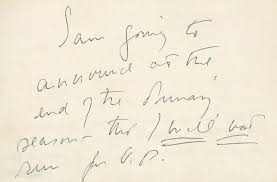 I am going to
announce at the
end of the Primary
season that I will not
run for V.P.